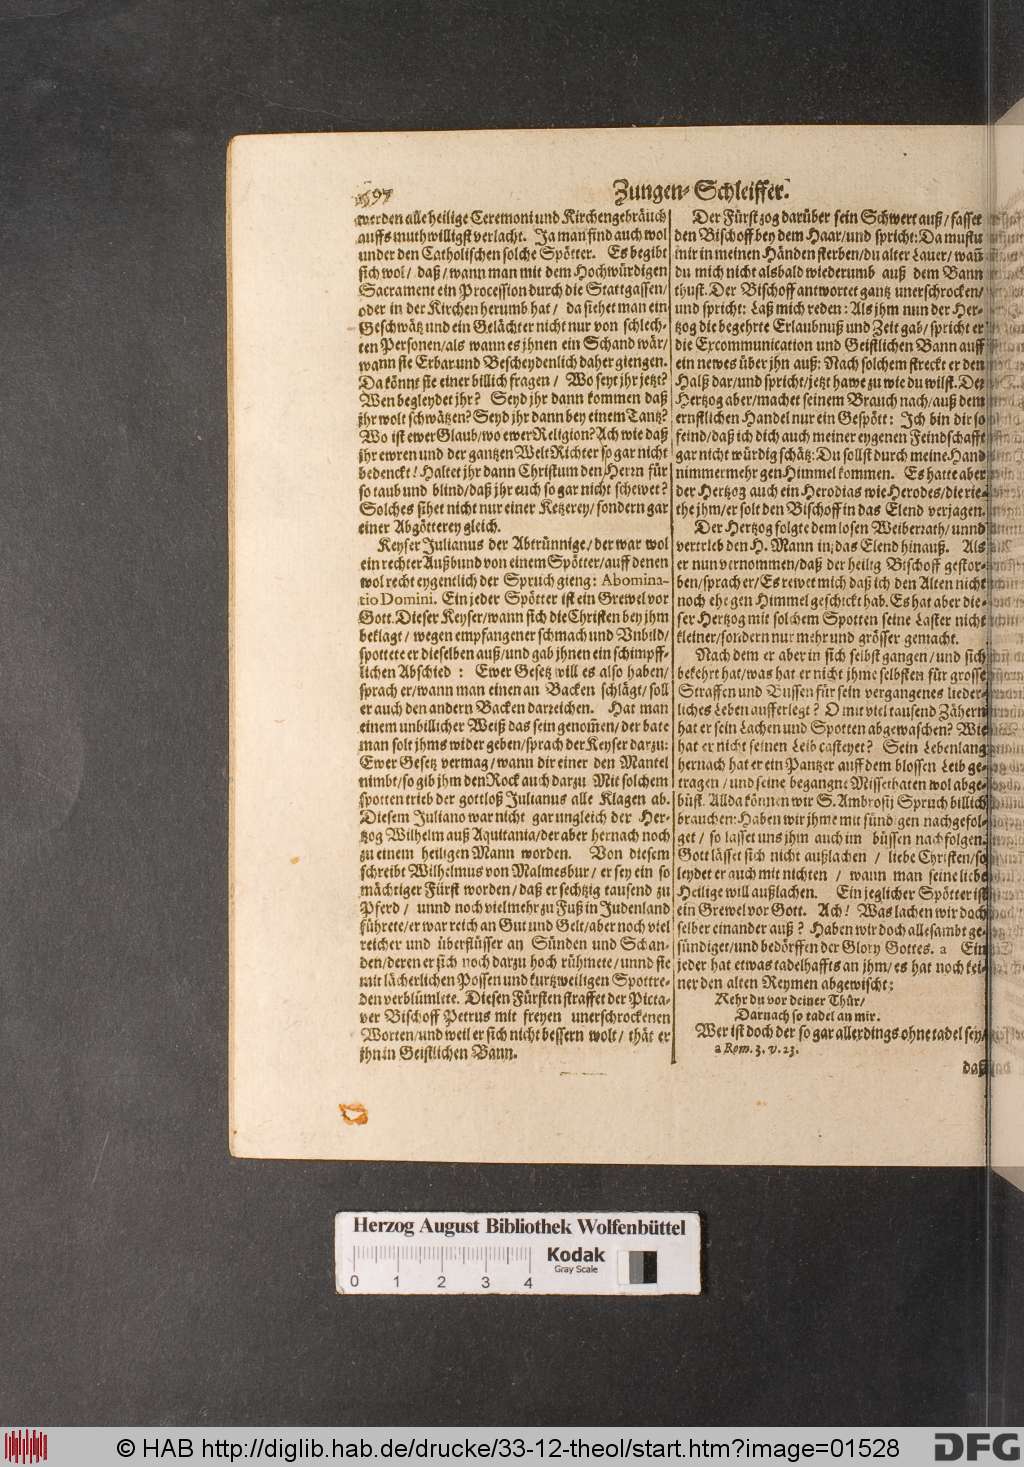 Zungen-Schleiffer.
werden alle heilige Ceremoni und Kirchengebräuch
auffs muthwilligst verlacht. Ja man find auch wol
under den Catholischen solche Spötter. Es begibt
sich wol/ daß/ wann man mit dem Hochwürdigen
Sacrament ein Procession durch die Stattgassen/
oder in der Kirchen herumb hat/ da siehet man ein
Geschwätz und ein Gelächter nicht nur von schlech-
ten Personen/ als wann es jhnen ein Schand wär/
wann sie Erbar und Bescheydenlich daher giengen.
Da könnt sie einer billich fragen/ Wo seyt jhr jetzt?
Wen begleydet jhr? Seyd jhr dann kommen daß
jhr wolt schwätzen? Seyd jhr dann bey einem Tantz?
Wo ist ewer Glaub/ wo ewer Religion? Ach wie daß
jhr ewren und der gantzen Welt Richter so gar nicht
bedenckt! Haltet jhr dann Christum den Herrn für
so taub und blind/ daß jhr euch so gar nicht schewet?
Solches sihet nicht nur einer Ketzerey/ sondern gar
einer Abgötterey gleich.
Keyser Julianus der Abtrünnige/ der war wol
ein rechter Außbund von einem Spötter/ auff denen
wol recht eygentlich der Spruch gieng: Abomina-
tio Domini. Ein jeder Spötter ist ein Grewel vor
Gott. Dieser Keyser/ wann sich die Christen bey jhm
beklagt/ wegen empfangener schmach und Vnbild/
spottete er dieselben auß/ und gab jhnen ein schimpff-
lichen Abschied: Ewer Gesetz will es also haben/
sprach er/ wann man einen an Backen schlägt/ soll
er auch den andern Backen darzeichen. Hat man
einem unbillicher Weiß das sein genom̃en/ der bate
man solt jhms wider geben/ sprach der Keyser darzu:
Ewer Gesetz vermag/ wann dir einer den Mantel
nimbt/ so gib jhm den Rock auch darzu Mit solchem
spotten trieb der gottloß Julianus alle Klagen ab.
Diesem Juliano war nicht gar ungleich der Her-
tzog Wilhelm auß Aquitania/ der aber hernach noch
zu einem heiligen Mann worden. Von diesem
schreibt Wilhelmus von Malmesbur/ er sey ein so
mächtiger Fürst worden/ daß er sechtzig tausend zu
Pferd/ unnd noch vielmehr zu Fuß in Judenland
führete/ er war reich an Gut und Gelt/ aber noch viel
reicher und überflüsser an Sünden und Schan-
den/ deren er sich noch darzu hoch rühmete/ unnd sie
mit lächerlichen Possen und kurtzweiligen Spottre-
den verblümlete. Diesen Fürsten straffet der Picta-
ver Bischoff Petrus mit freyen unerschrockenen
Worten/ und weil er sich nicht bessern wolt/ thät er
jhn in Geistlichen Bann.
Der Fürst zog darüber sein Schwert auß/ fasset
den Bischoff bey dem Haar/ und spricht: Da mustu
mir in meinen Händen sterben/ du alter Lauer/ wañ
du mich nicht alsbald wiederumb auß dem Bann
thust. Der Bischoff antwortet gantz unerschrocken/
und spricht: Laß mich reden: Als jhm nun der Her-
tzog die begehrte Erlaubnuß und Zeit gab/ spricht er
die Excommunication und Geistlichen Bann auff
ein newes über jhn auß: Nach solchem streckt er den
Halß dar/ und spricht/ jetzt hawe zu wie du wilst. Der
Hertzog aber/ machet seinem Brauch nach/ auß dem
ernstlichen Handel nur ein Gespött: Ich bin dir so
feind/ daß ich dich auch meiner eygenen Feindschafft
gar nicht würdig schätz: Du sollst durch meine Hand
nimmermehr gen Himmel kommen. Es hatte aber
der Hertzog auch ein Herodias wie Herodes/ die rie-
the jhm/ er solt den Bischoff in das Elend verjagen.
Der Hertzog folgte dem losen Weiberrath/ unnd
vertrieb den H. Mann in das Elend hinauß. Als
er nun vernommen/ daß der heilig Bischoff gestor-
ben/ sprach er/ Es rewet mich daß ich den Alten nicht
noch ehe gen Himmel geschickt hab. Es hat aber die-
ser Hertzog mit solchem Spotten seine Laster nicht
kleiner/ sondern nur mehr und grösser gemacht.
Nach dem er aber in sich selbst gangen/ und sich
bekehrt hat/ was hat er nicht jhme selbsten für grosse
Straffen und Bussen für sein vergangenes lieder-
liches Leben aufferlegt? O mit viel tausend Zähern
hat er sein Lachen und Spotten abgewaschen? Wie
hat er nicht seinen Leib casteyet? Sein Lebenlang
hernach hat er ein Pantzer auff dem blossen Leib ge-
tragen/ und seine begangne Missethaten wol abge-
büst. Allda können wir S. Ambrosij Spruch billich
brauchen: Haben wir jhme mit sündigen nachgefol-
get/ so lasset uns jhm auch im büssen nachfolgen.
Gott lässet sich nicht außlachen/ liebe Christen/ so
leydet er auch mit nichten/ wann man seine liebe
Heilige will außlachen. Ein jeglicher Spötter ist
ein Grewel vor Gott. Ach! Was lachen wir doch
selber einander auß? Haben wir doch allesambt ge-
sündiget/ und bedörffen der Glory Gottes. a Ein
jeder hat etwas tadelhaffts an jhm/ es hat noch kei-
ner den alten Reymen abgewischt:
Kehr du vor deiner Thür/
Darnach so tadel an mir.
Wer ist doch der so gar allerdings ohne tadel sey/
a Rom. 3. v. 23.
daß
Herzog August Bibliothek Wolfenbüttel
Kodak
Gray Scale
0 1 2 3 4
© HAB http://diglib.hab.de/drucke/33-12-theol/start.htm?image=01528
DFG